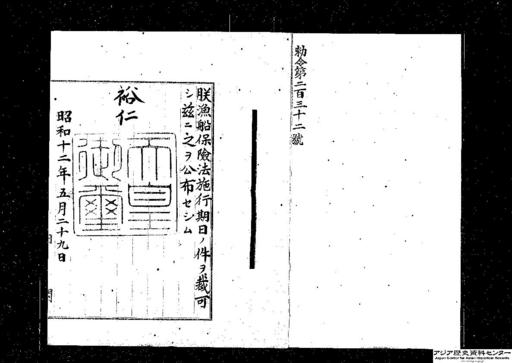 勅令第二百三十二號
朕漁船保險法施行期日ノ件ヲ裁可
シ茲ニ之ヲ公布セシム
裕仁
天皇御璽
昭和十二年五月二十九日
アジア歴史資料センター
Japan Center for Asian Historical Records